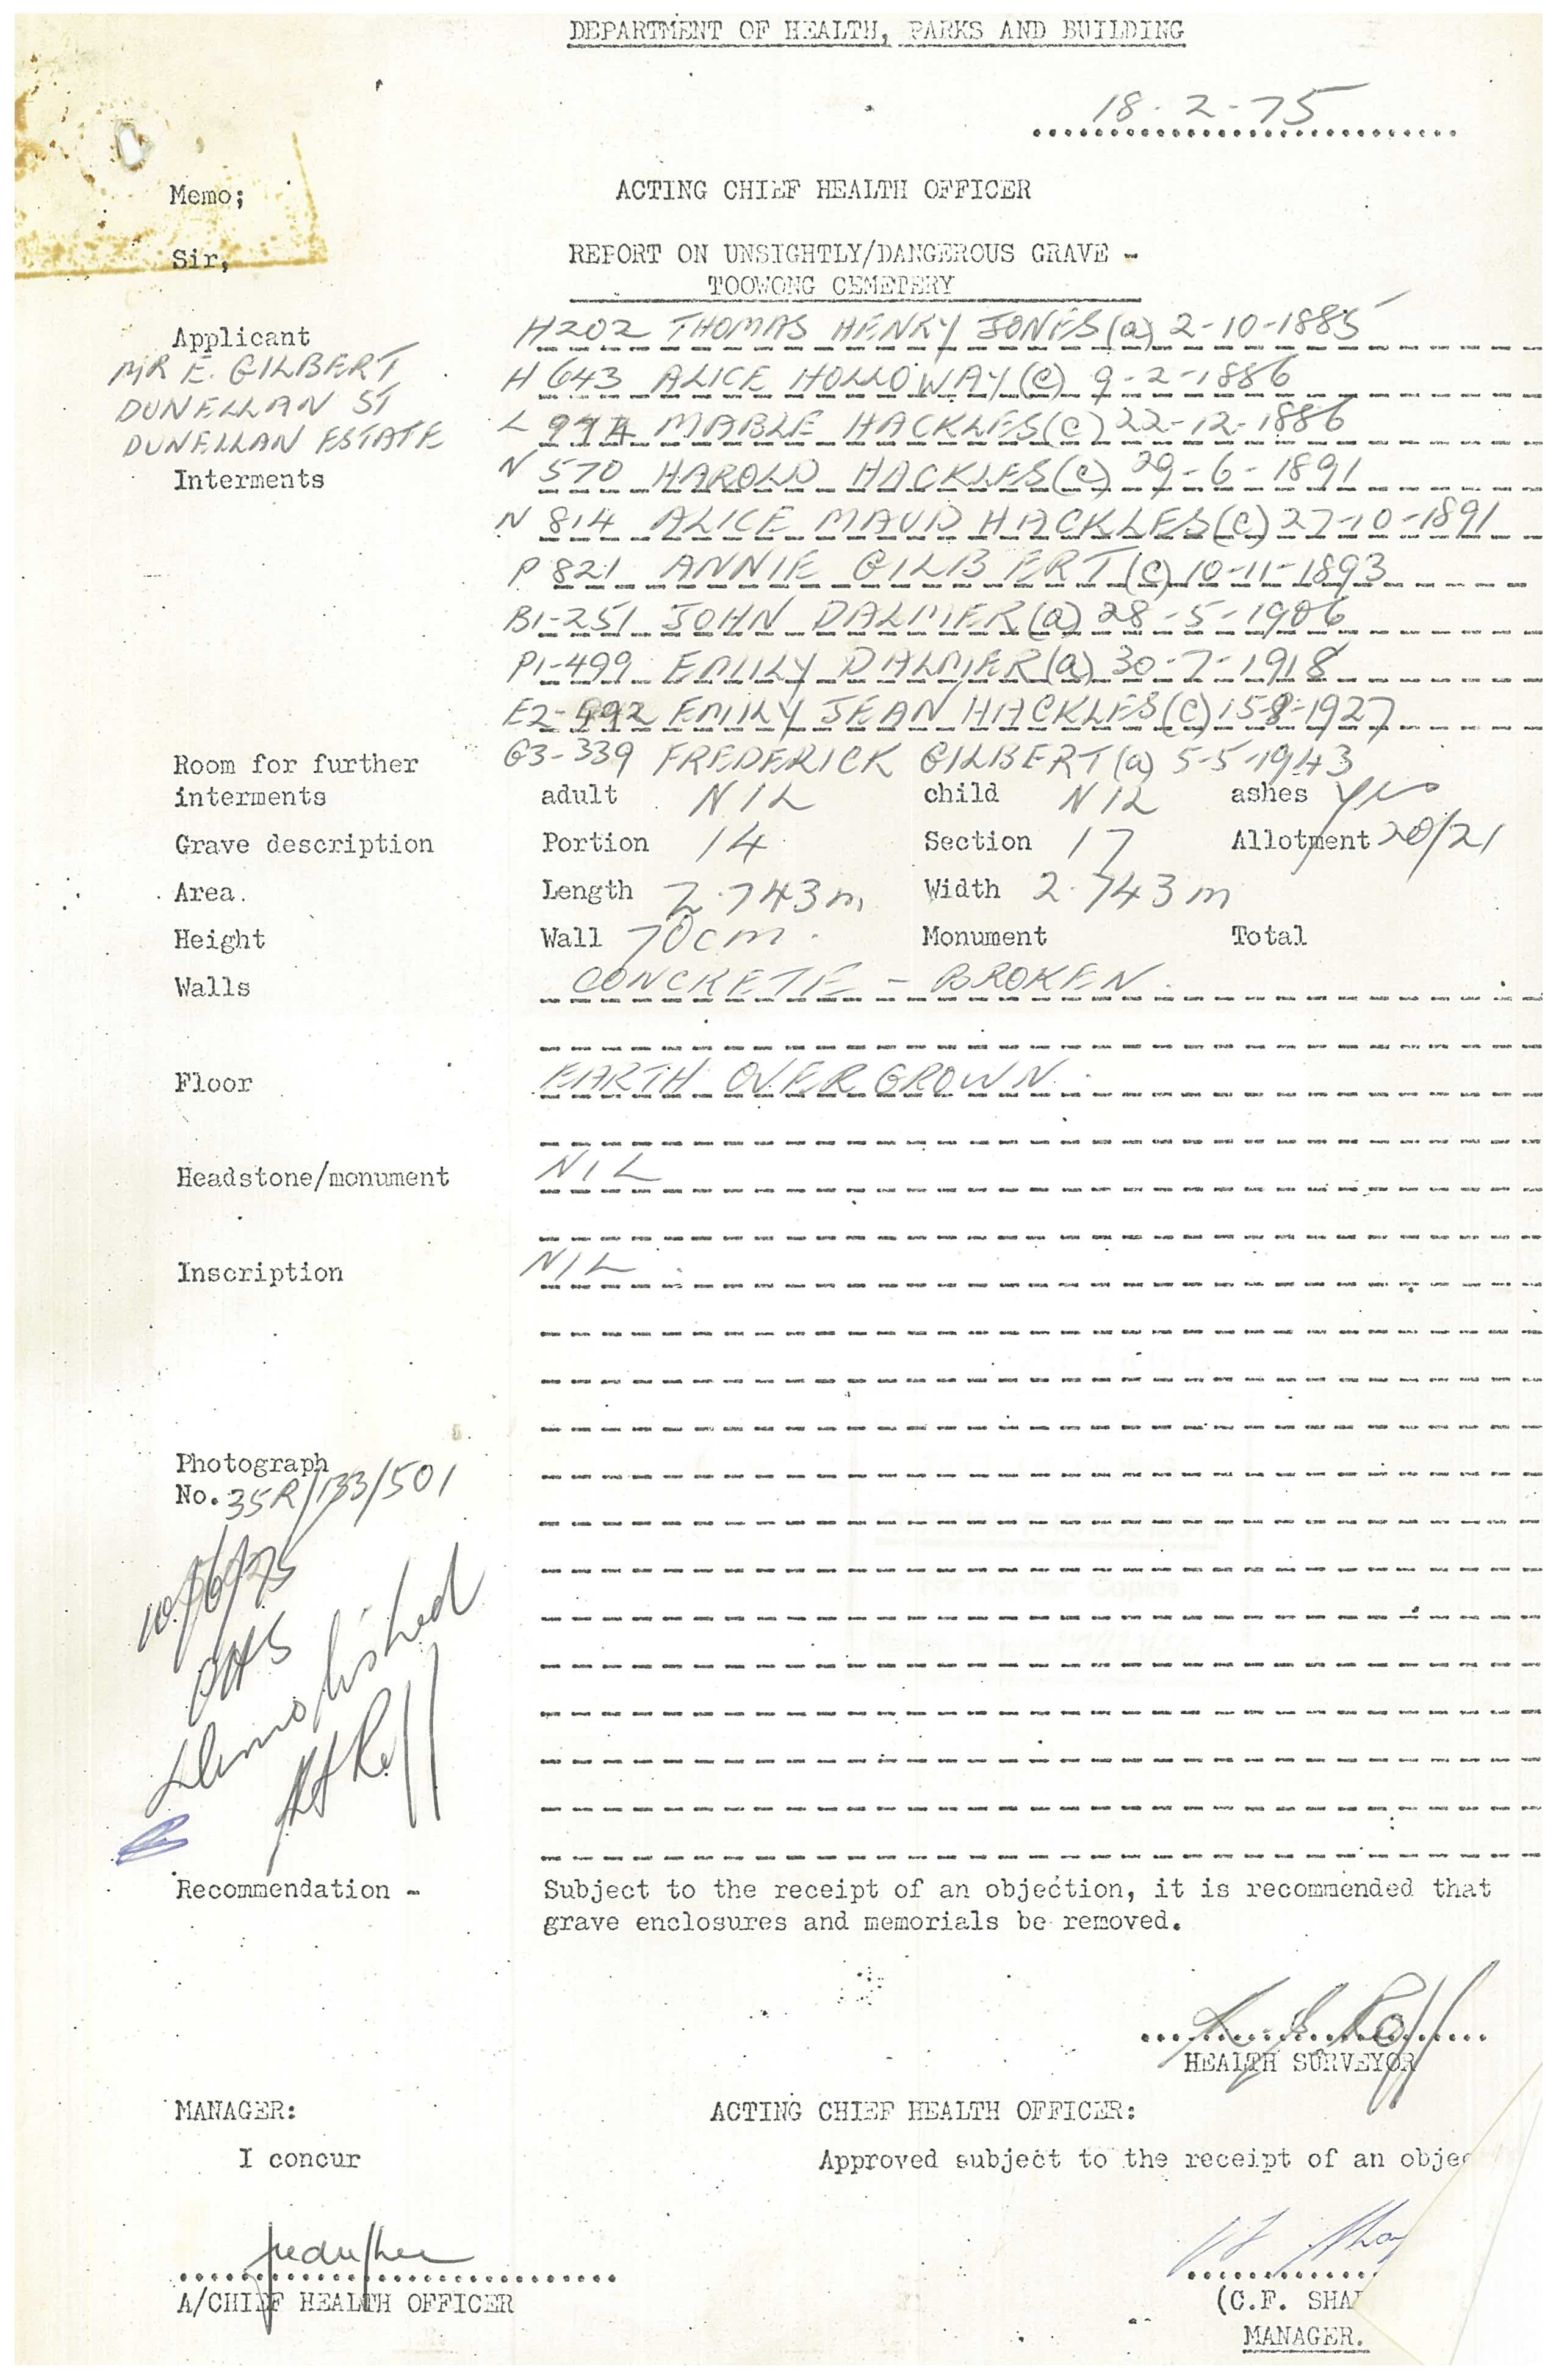 DEPARTMENT OF HEALTH, PARKS AND BUILDING
18-2-75
Memo; ACTING CHIEF HEALTH OFFICER
Sir, REPORT ON UNSIGHTLY/DANGEROUS GRAVE -
TOOWONG CEMETERY
Applicant H202 THOMAS HENRY JONES (a) 2-10-1885
MR E. GILBERT H 643 ALICE HOLLOWAY (C) 9-2-1886
DUNELLAN ST L MABLE HACKLES (C) 22-12-1886
DUNELLAN ESTATE
Interments N 570 HAROLD HACKLES (C) 29-6-1891
N 814 ALICE MAUD HACKLES (C) 27-10-1891
P 821 ANNIE GILBERT (C) 10-11-1893
B1-251 JOHN DALMER (a) 28-5-1906
P1-499 EMILY DALMER (a) 30-7-1918
E2-492 EMILY JEAN HACKLES (C) 15-8-1927
G3-339 FREDERICK GILBERT (a) 5-5-1943
Room for further
interments adult NIL child NIL ashes yes
Grave description Portion 14 Section 17 Allotment 20/21
Area. Length 2.743m Width 2.743m
Height Wall 70cm. Monument Total
Walls CONCRETE - BROKEN.
Floor EARTH OVERGROWN.
Headstone/monument NIL
Inscription NIL.
Photograph
No. 35R/133/501
10/6/75
Demolished
Recommendation - Subject to the receipt of an objection, it is recommended that
grave enclosures and memorials be removed.
HEALTH SURVEYOR
MANAGER: ACTING CHIEF HEALTH OFFICER:
I concur Approved subject to the receipt of an objec
A/CHIEF HEALTH OFFICER (C.F. SHA
MANAGER.